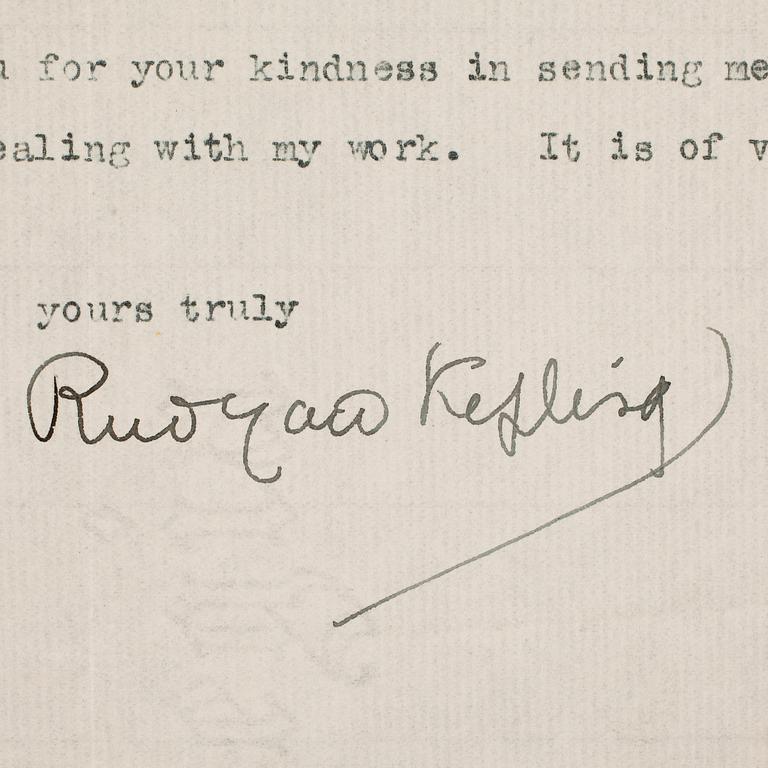 u for your kindness in sending me
ealing with my work. It is of v
yours truly
Rudyard Kipling